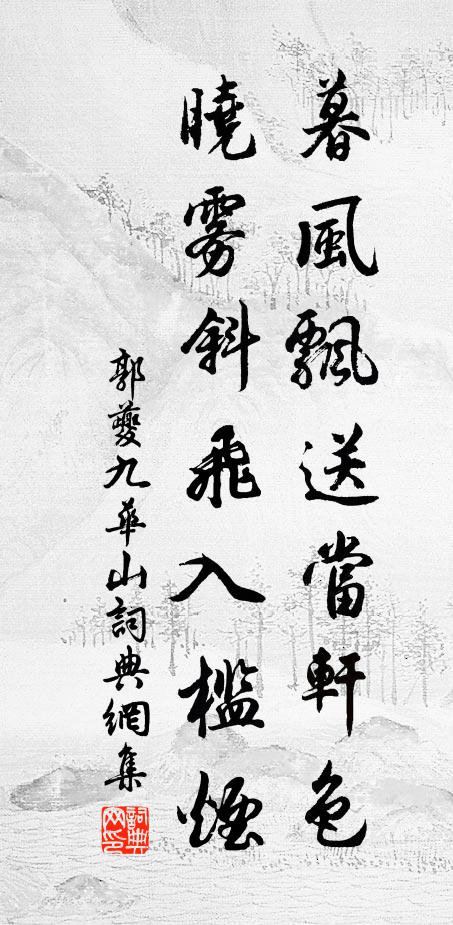 暮風飄送當軒色
曉霧斜飛入檻煙
郭夔九華山詞典網集
詞典網印